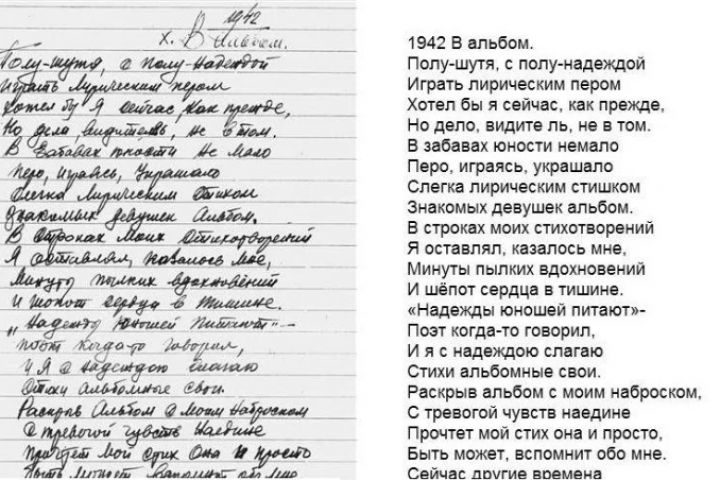 1942
X. В Альбом.
Полу-шутя, с полу-Надеждой
Играть Лирическим пером
Хотел бы Я сейчас, Как прежде,
Но дела видитель, не в том.
В Забавах юности Не мало
Перо, играясь, Украшало
Слегка Лирическим Стихом
Знакомых девушек Альбом.
В Строках Моих Стихотворений
Я оставлял, казалось Мне,
Минуты пылких вдохновений
И шопот сердца в Тишине.
„Надежды Юношей Питают"—
Поэт Когда-то Говорил,
И Я с надеждою слагаю
Стихи Альбомные свои.
Раскрыв Альбом с Моим Наброском
С тревогой чувств Наедине
Прочтет Мой стих Она И просто
Быть может Вспомнит обо Мне
1942 В альбом.
Полу-шутя, с полу-надеждой
Играть лирическим пером
Хотел бы я сейчас, как прежде,
Но дело, видите ль, не в том.
В забавах юности немало
Перо, играясь, украшало
Слегка лирическим стишком
Знакомых девушек альбом.
В строках моих стихотворений
Я оставлял, казалось мне,
Минуты пылких вдохновений
И шёпот сердца в тишине.
«Надежды юношей питают»-
Поэт когда-то говорил,
И я с надеждою слагаю
Стихи альбомные свои.
Раскрыв альбом с моим наброском,
С тревогой чувств наедине
Прочтет мой стих она и просто,
Быть может, вспомнит обо мне.
Сейчас другие времена